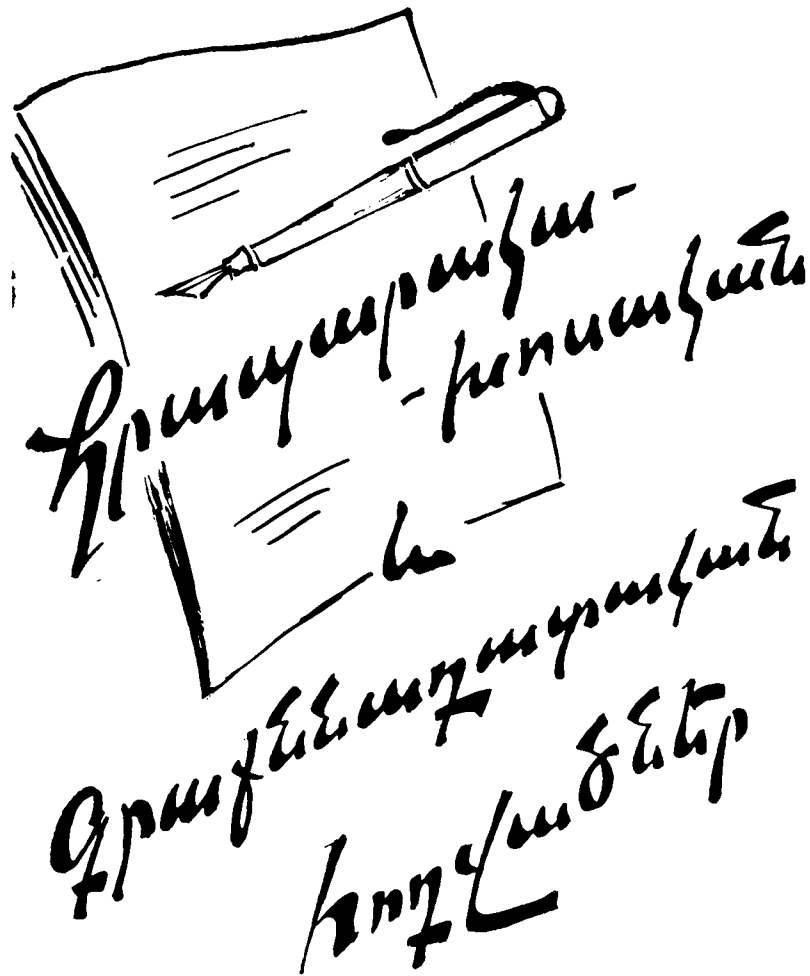 Հրապարակա-
-խոսական
և
Գրաքննադատական
հոդվածներ